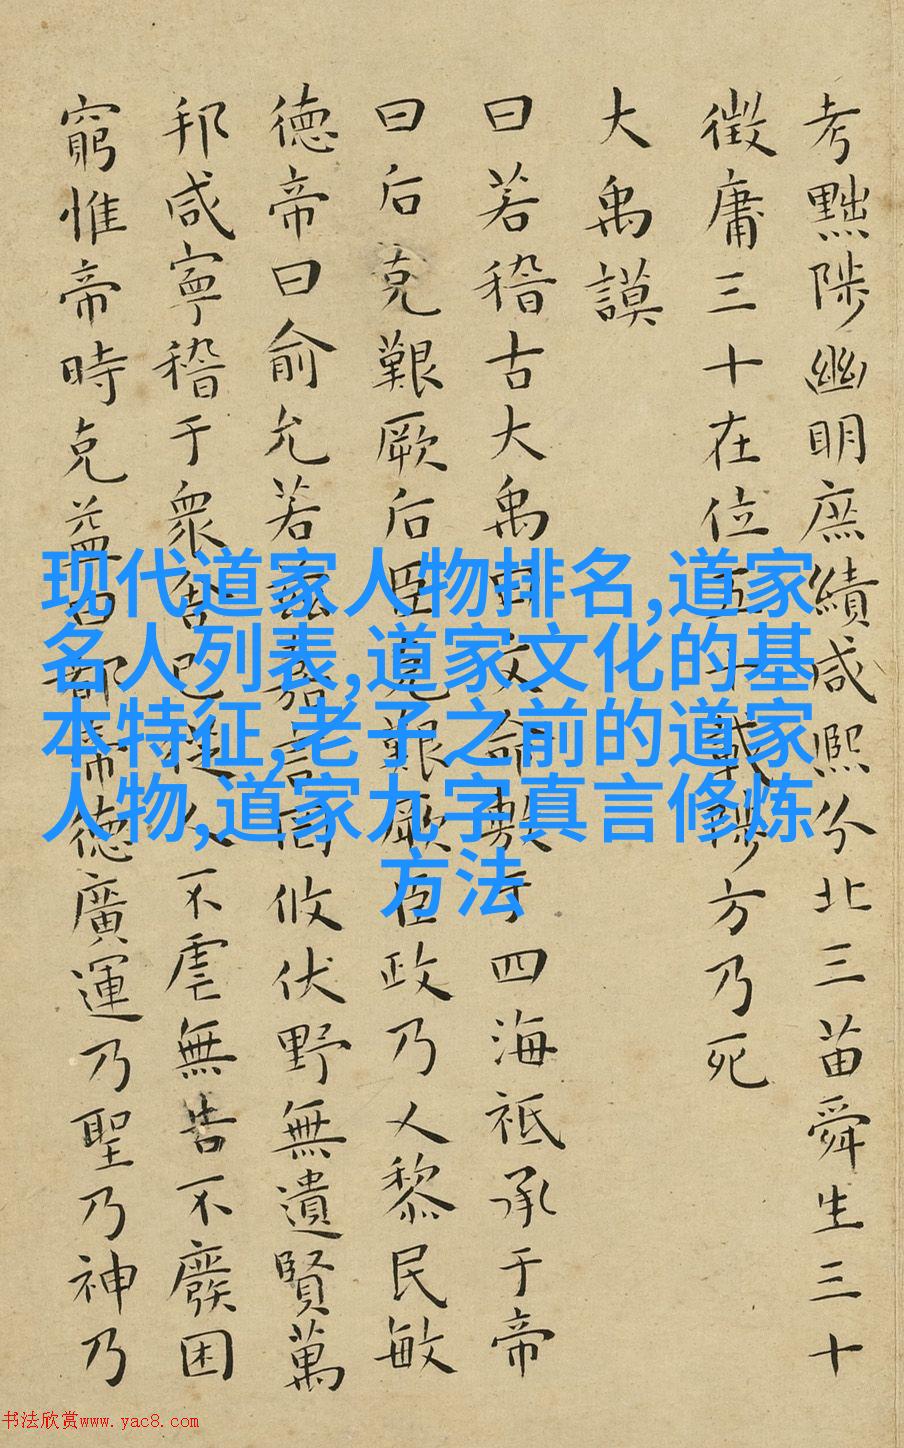 考黜陟幽明庶績咸熙分北三苗舜生三十
徵庸三十在位五十載陟方乃死
大禹謨
曰若稽古大禹曰文命敷于四海祗承于帝
曰后克艱厥后臣克艱厥臣政乃乂黎民敏
德帝曰俞允若茲嘉言罔攸伏野無遺賢萬
邦咸寧稽于衆舍己從人不虐無告不廢困
窮惟帝時克益曰都帝德廣運乃聖乃神乃
现代道家人物排名,道家
名人列表,道家文化的基
本特征,老子之前的道家
人物,道家九字真言修炼
方法
书法欣赏www.yac8.com